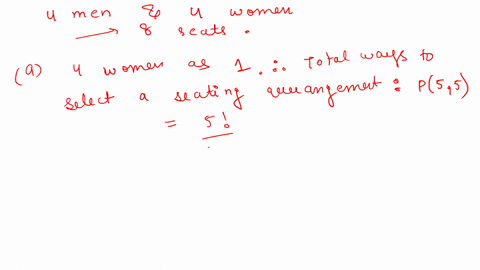 4 men & 4 women
⟶ 8 seats.
(a) 4 women as 1. ∴ Total ways to
select a seating arrangement : P(5,5)
= 5!